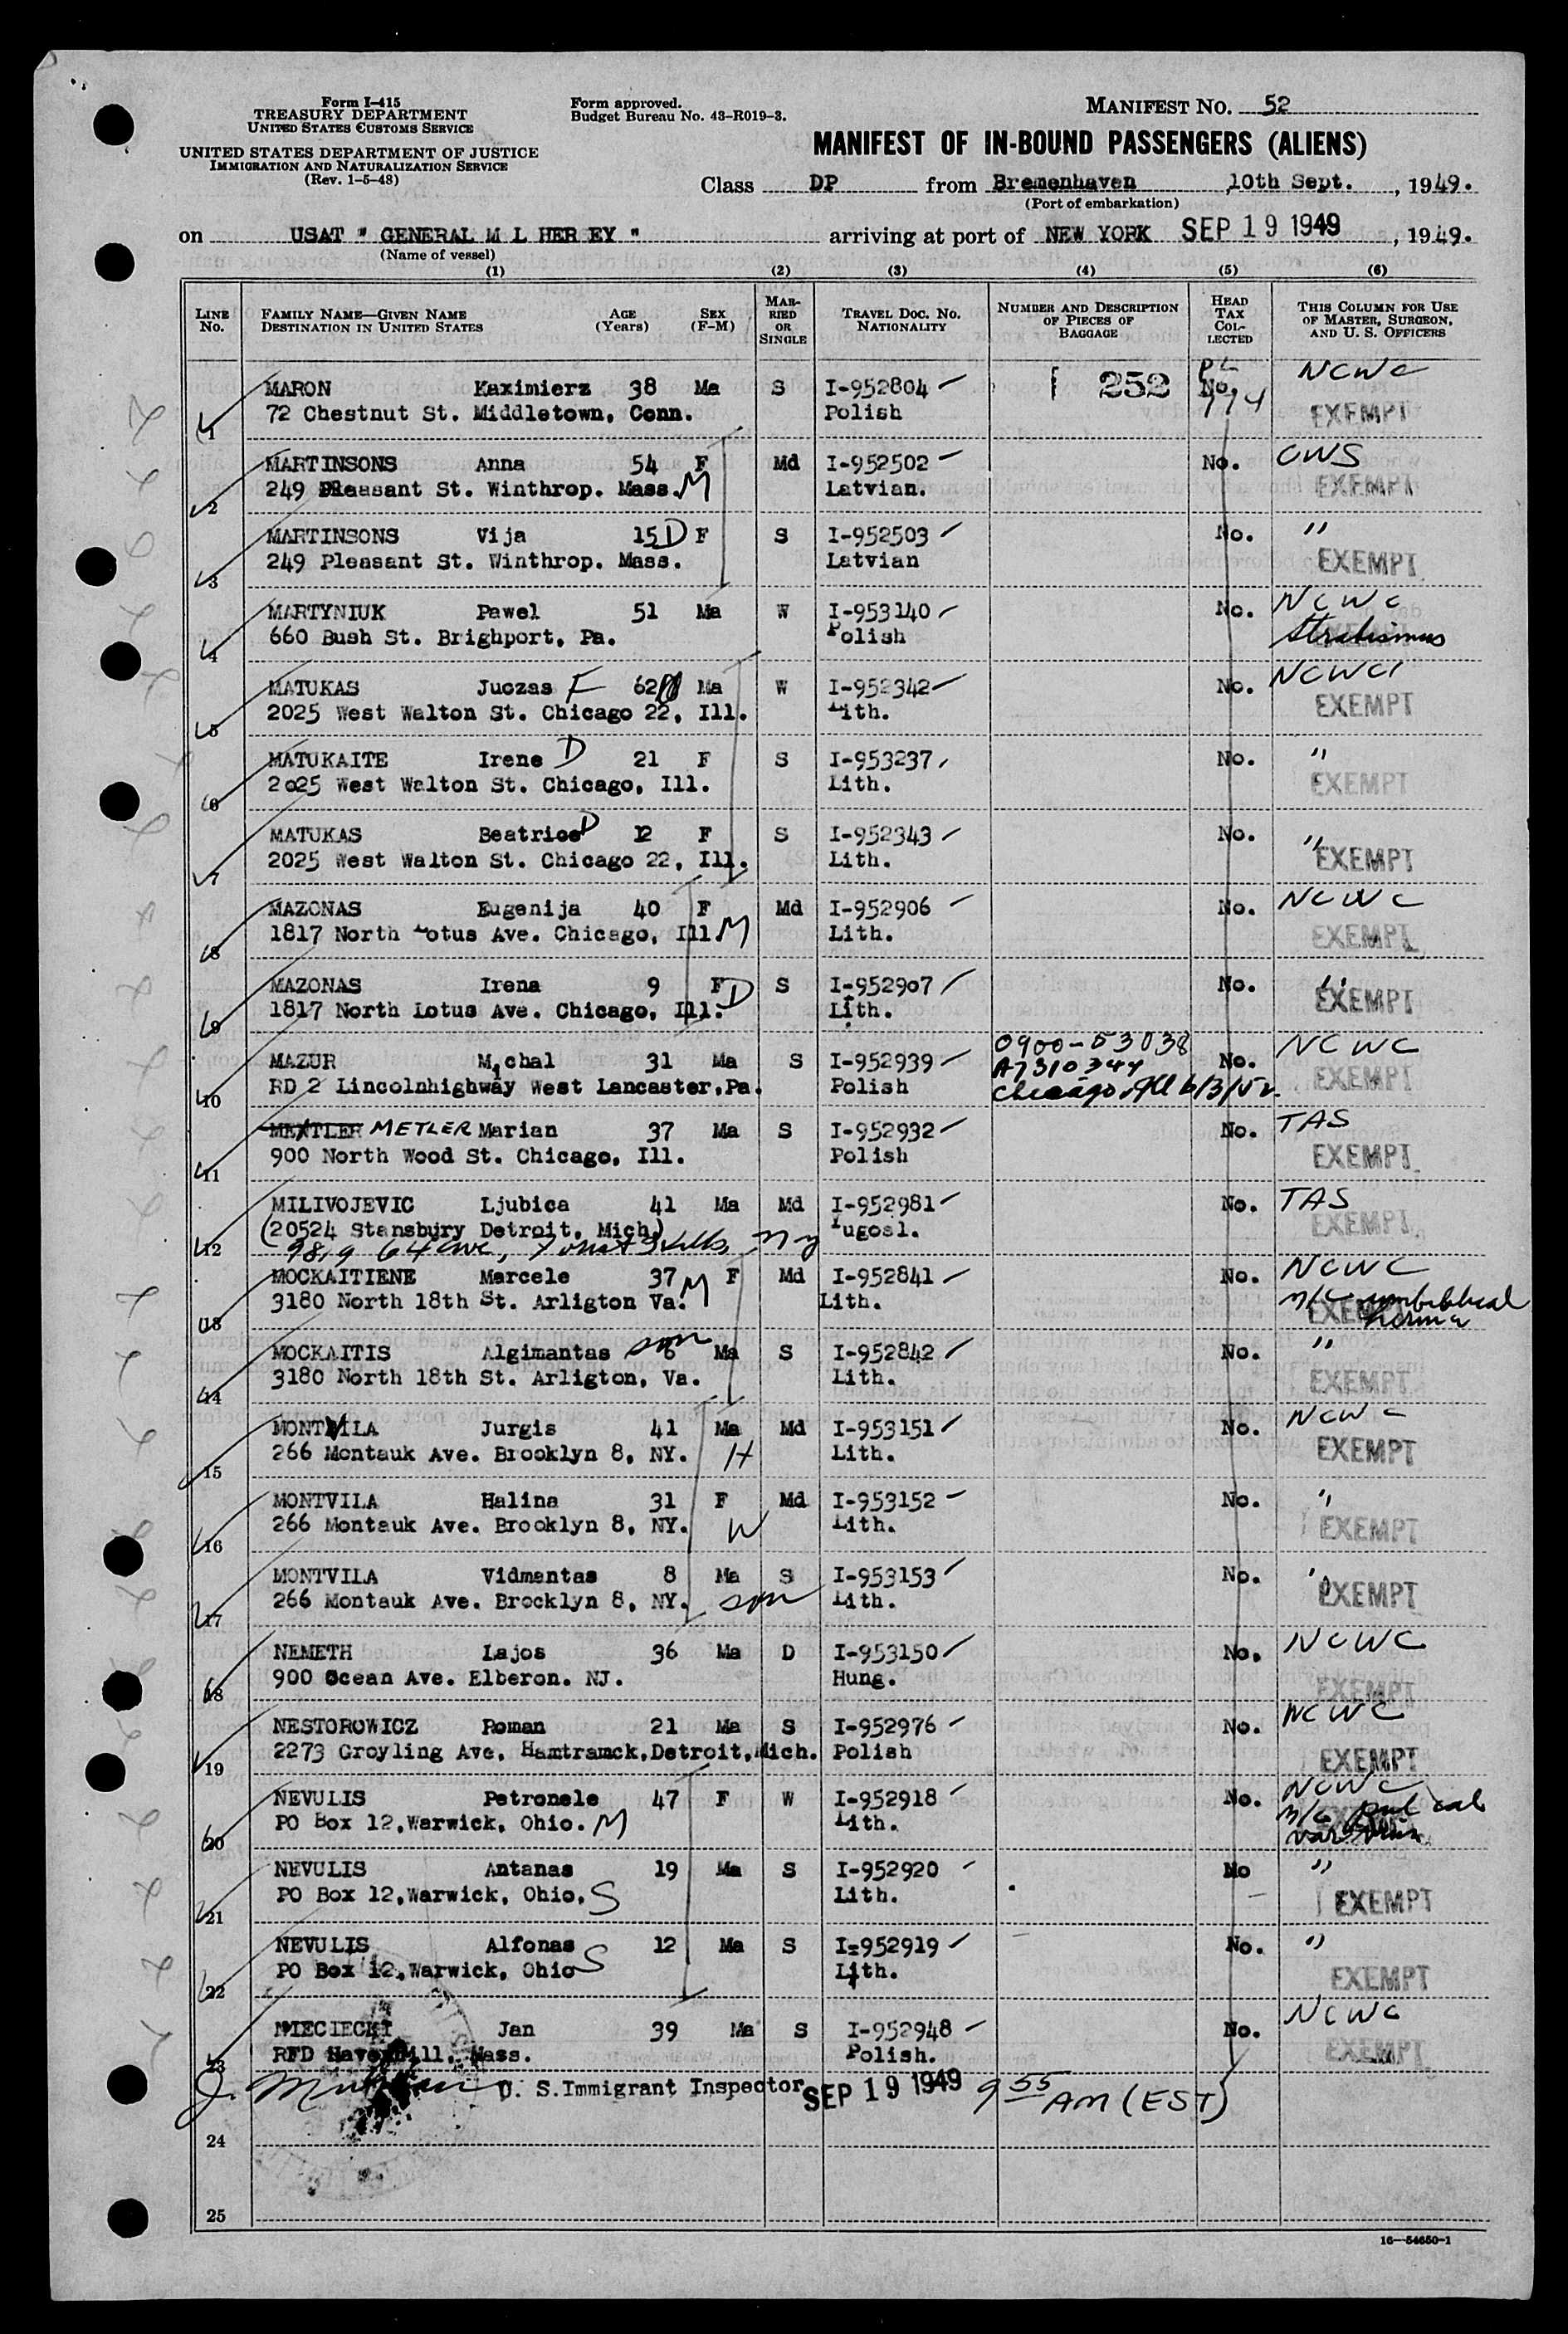 Form I-415
TREASURY DEPARTMENT
UNITED STATES CUSTOMS SERVICE
UNITED STATES DEPARTMENT OF JUSTICE
IMMIGRATION AND NATURALIZATION SERVICE
(Rev. 1-5-48)
Form approved.
Budget Bureau No. 43-R019-3.
MANIFEST NO. 52
MANIFEST OF IN-BOUND PASSENGERS (ALIENS)
Class DP from Bremenhaven ,10th Sept. , 1949.
(Port of embarkation)
on USAT " GENERAL M L HERSEY " arriving at port of NEW YORK SEP 19 1949 , 1949.
(Name of vessel)
(1) (2) (3) (4) (5) (6)
LINE No. FAMILY NAME—GIVEN NAME DESTINATION IN UNITED STATES AGE (Years) SEX (F-M) MARRIED OR SINGLE TRAVEL DOC. NO. NATIONALITY NUMBER AND DESCRIPTION OF PIECES OF BAGGAGE HEAD TAX COLLECTED THIS COLUMN FOR USE OF MASTER, SURGEON, AND U. S. OFFICERS
1 MARON Kaximierz 38 Ma S I-952804 1 252 PL No. 774 NCWC
72 Chestnut St. Middletown, Conn. Polish EXEMPT
2 MARTINSONS Anna 54 F Md I-952502 No. CWS
249 Pleasant St. Winthrop. Mass. M Latvian. EXEMPT
3 MARTINSONS Vija 15 D F S I-952503 No. "
249 Pleasant St. Winthrop. Mass. Latvian EXEMPT
4 MARTYNIUK Pawel 51 Ma W I-953140 No. NCWC
660 Bush St. Brighport, Pa. Polish Strabismus
5 MATUKAS Juozas F 62 Ma W I-952342 No. NCWC
2025 West Walton St. Chicago 22, Ill. Lith. EXEMPT
6 MATUKAITE Irene D 21 F S I-953237 No. "
2025 West Walton St. Chicago, Ill. Lith. EXEMPT
7 MATUKAS Beatrice D 12 F S I-952343 No. "
2025 West Walton St. Chicago 22, Ill. Lith. EXEMPT
8 MAZONAS Eugenija 40 F Md I-952906 No. NCWC
1817 North Lotus Ave. Chicago, Ill. M Lith. EXEMPT
9 MAZONAS Irena 9 F D S I-952907 No. "
1817 North Lotus Ave. Chicago, Ill. Lith. EXEMPT
10 MAZUR Michal 31 Ma S I-952939 0900-53038 No. NCWC
A7310344
RD 2 Lincolnhighway West Lancaster,Pa. Polish Chicago, Ill 6/3/52 EXEMPT
11 METLER Marian 37 Ma S I-952932 No. TAS
900 North Wood St. Chicago, Ill. Polish EXEMPT
12 MILIVOJEVIC Ljubica 41 Ma Md I-952981 No. TAS
(20524 Stansbury Detroit, Mich.) Yugosl. EXEMPT
64 Ave, NY
13 MOCKAITIENE Marcele 37 M F Md I-952841 No. NCWC
3180 North 18th St. Arligton Va. Lith. EXEMPT n/c umbilical hernia
14 MOCKAITIS Algimantas son 6 Ma S I-952842 No. "
3180 North 18th St. Arligton, Va. Lith. EXEMPT
15 MONTVILA Jurgis 41 Ma Md I-953151 No. NCWC
266 Montauk Ave. Brooklyn 8, NY. H Lith. EXEMPT
16 MONTVILA Halina 31 F Md I-953152 No. "
266 Montauk Ave. Brooklyn 8, NY. W Lith. EXEMPT
17 MONTVILA Vidmantas 8 Ma S I-953153 No. "
266 Montauk Ave. Brooklyn 8, NY. son Lith. EXEMPT
18 NEMETH Lajos 36 Ma D I-953150 No. NCWC
900 Ocean Ave. Elberon. NJ. Hung. EXEMPT
19 NESTOROWICZ Roman 21 Ma S I-952976 No. NCWC
2273 Groyling Ave, Hamtramck,Detroit,Mich. Polish EXEMPT
20 NEVULIS Petronele 47 F W I-952918 No. NCWC
PO Box 12,Warwick, Ohio. M Lith. n/c
21 NEVULIS Antanas 19 Ma S I-952920 No "
PO Box 12,Warwick, Ohio. S Lith. EXEMPT
22 NEVULIS Alfonas 12 Ma S I-952919 No. "
PO Box 12,Warwick, Ohio S Lith. EXEMPT
23 MIECIECKI Jan 39 Ma S I-952948 No. NCWC
RFD Haverhill, Mass. Polish. EXEMPT
J. U. S.Immigrant Inspector SEP 19 1949 9 55 AM (EST)
24
25
16—54650-1